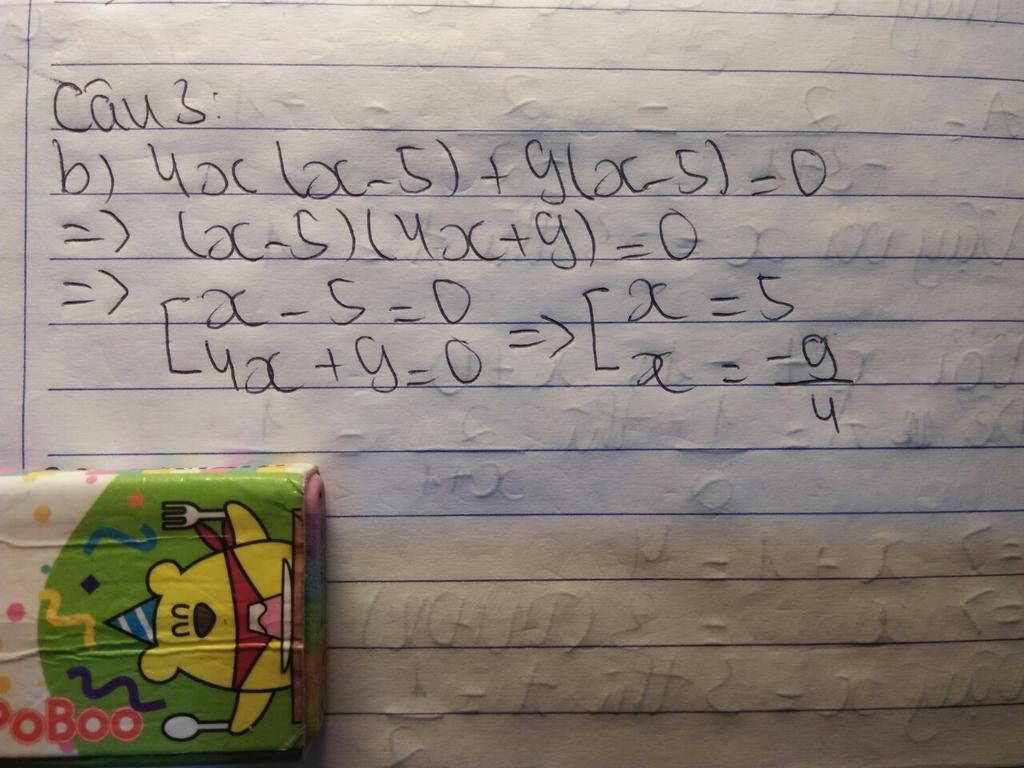 Câu 3:
b) 4x(x-5)+9(x-5)=0
=> (x-5)(4x+9)=0
=> [x-5=0 => [x=5
4x+9=0 x=-9/4
PoBoo